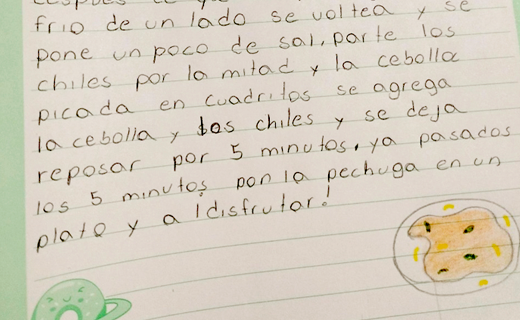 frio de un lado se voltea y se
pone un poco de sal, parte los
chiles por la mitad y la cebolla
picada en cuadritos se agrega
la cebolla y los chiles y se deja
reposar por 5 minutos, ya pasados
los 5 minutos pon la pechuga en un
plato y a disfrutar!